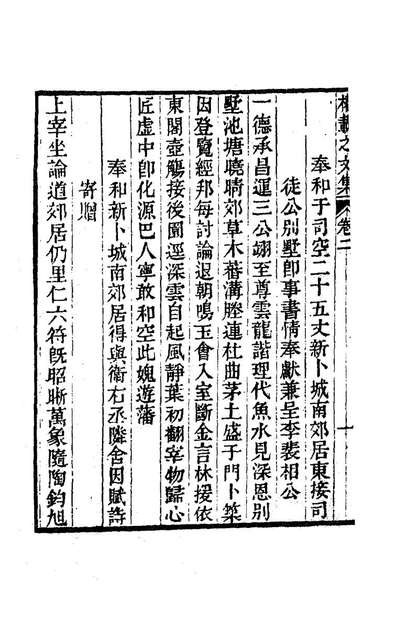 權載之文集 卷二
奉和于司空二十五丈新卜城南郊居東接司
徒公別墅卽事書情奉獻兼呈李裴相公
一德承昌運三公翊至尊雲龍諧理代魚水見深恩別
墅池塘曉晴郊草木蕃溝塍連杜曲茅土盛于門卜築
因登覽經邦每討論退朝鳴玉會入室斷金言林援依
東閣壺觴接後園逕深雲自起風靜葉初翻宰物歸心
匠虛中卽化源巴人寧敢和空此媿遊藩
奉和新卜城南郊居得與衞右丞隣舍因賦詩
寄贈
上宰坐論道郊居仍里仁六符旣昭晰萬象隨陶鈞旭